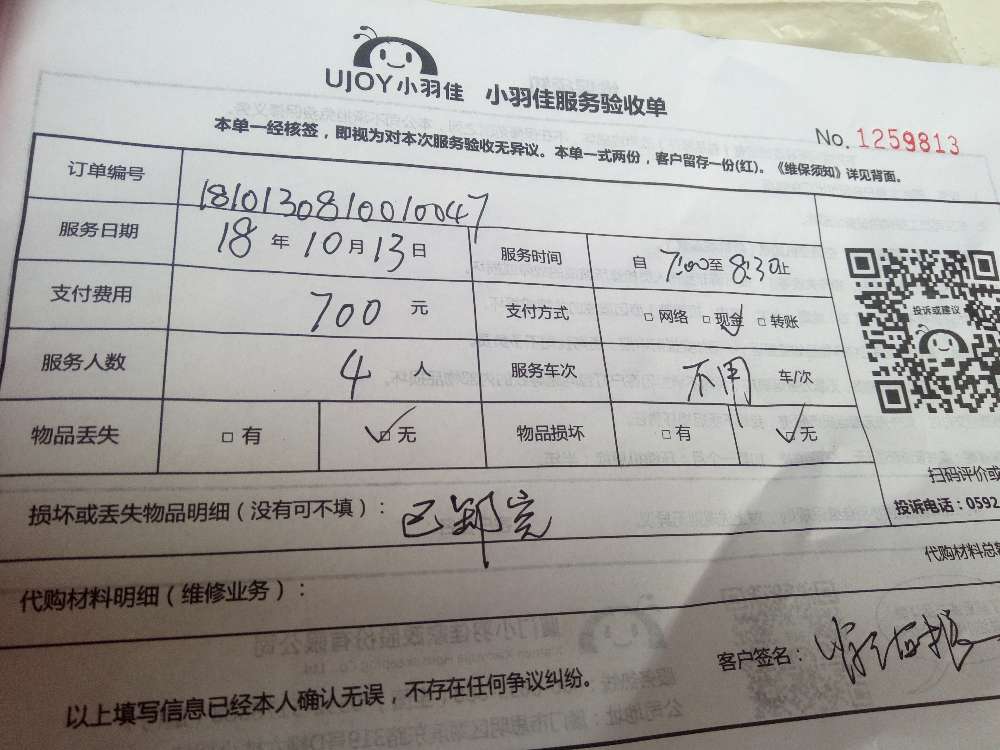 UJOY小羽佳 小羽佳服务验收单
No. 1259813
本单一经核签，即视为对本次服务验收无异议。本单一式两份，客户留存一份(红)。《维保须知》详见背面。
订单编号 1810130810010047
服务日期 18 年 10 月 13 日 服务时间 自 7:00 至 8:30 止
支付费用 700 元 支付方式 □ 网络 □ 现金 □ 转账
服务人数 4 人 服务车次 不用 车/次
物品丢失 □ 有 □ 无 物品损坏 □ 有 □ 无
投诉或建议
扫码评价或
投诉电话：0592
损坏或丢失物品明细（没有可不填）：
代购材料总
代购材料明细（维修业务）：
客户签名：
以上填写信息已经本人确认无误，不存在任何争议纠纷。